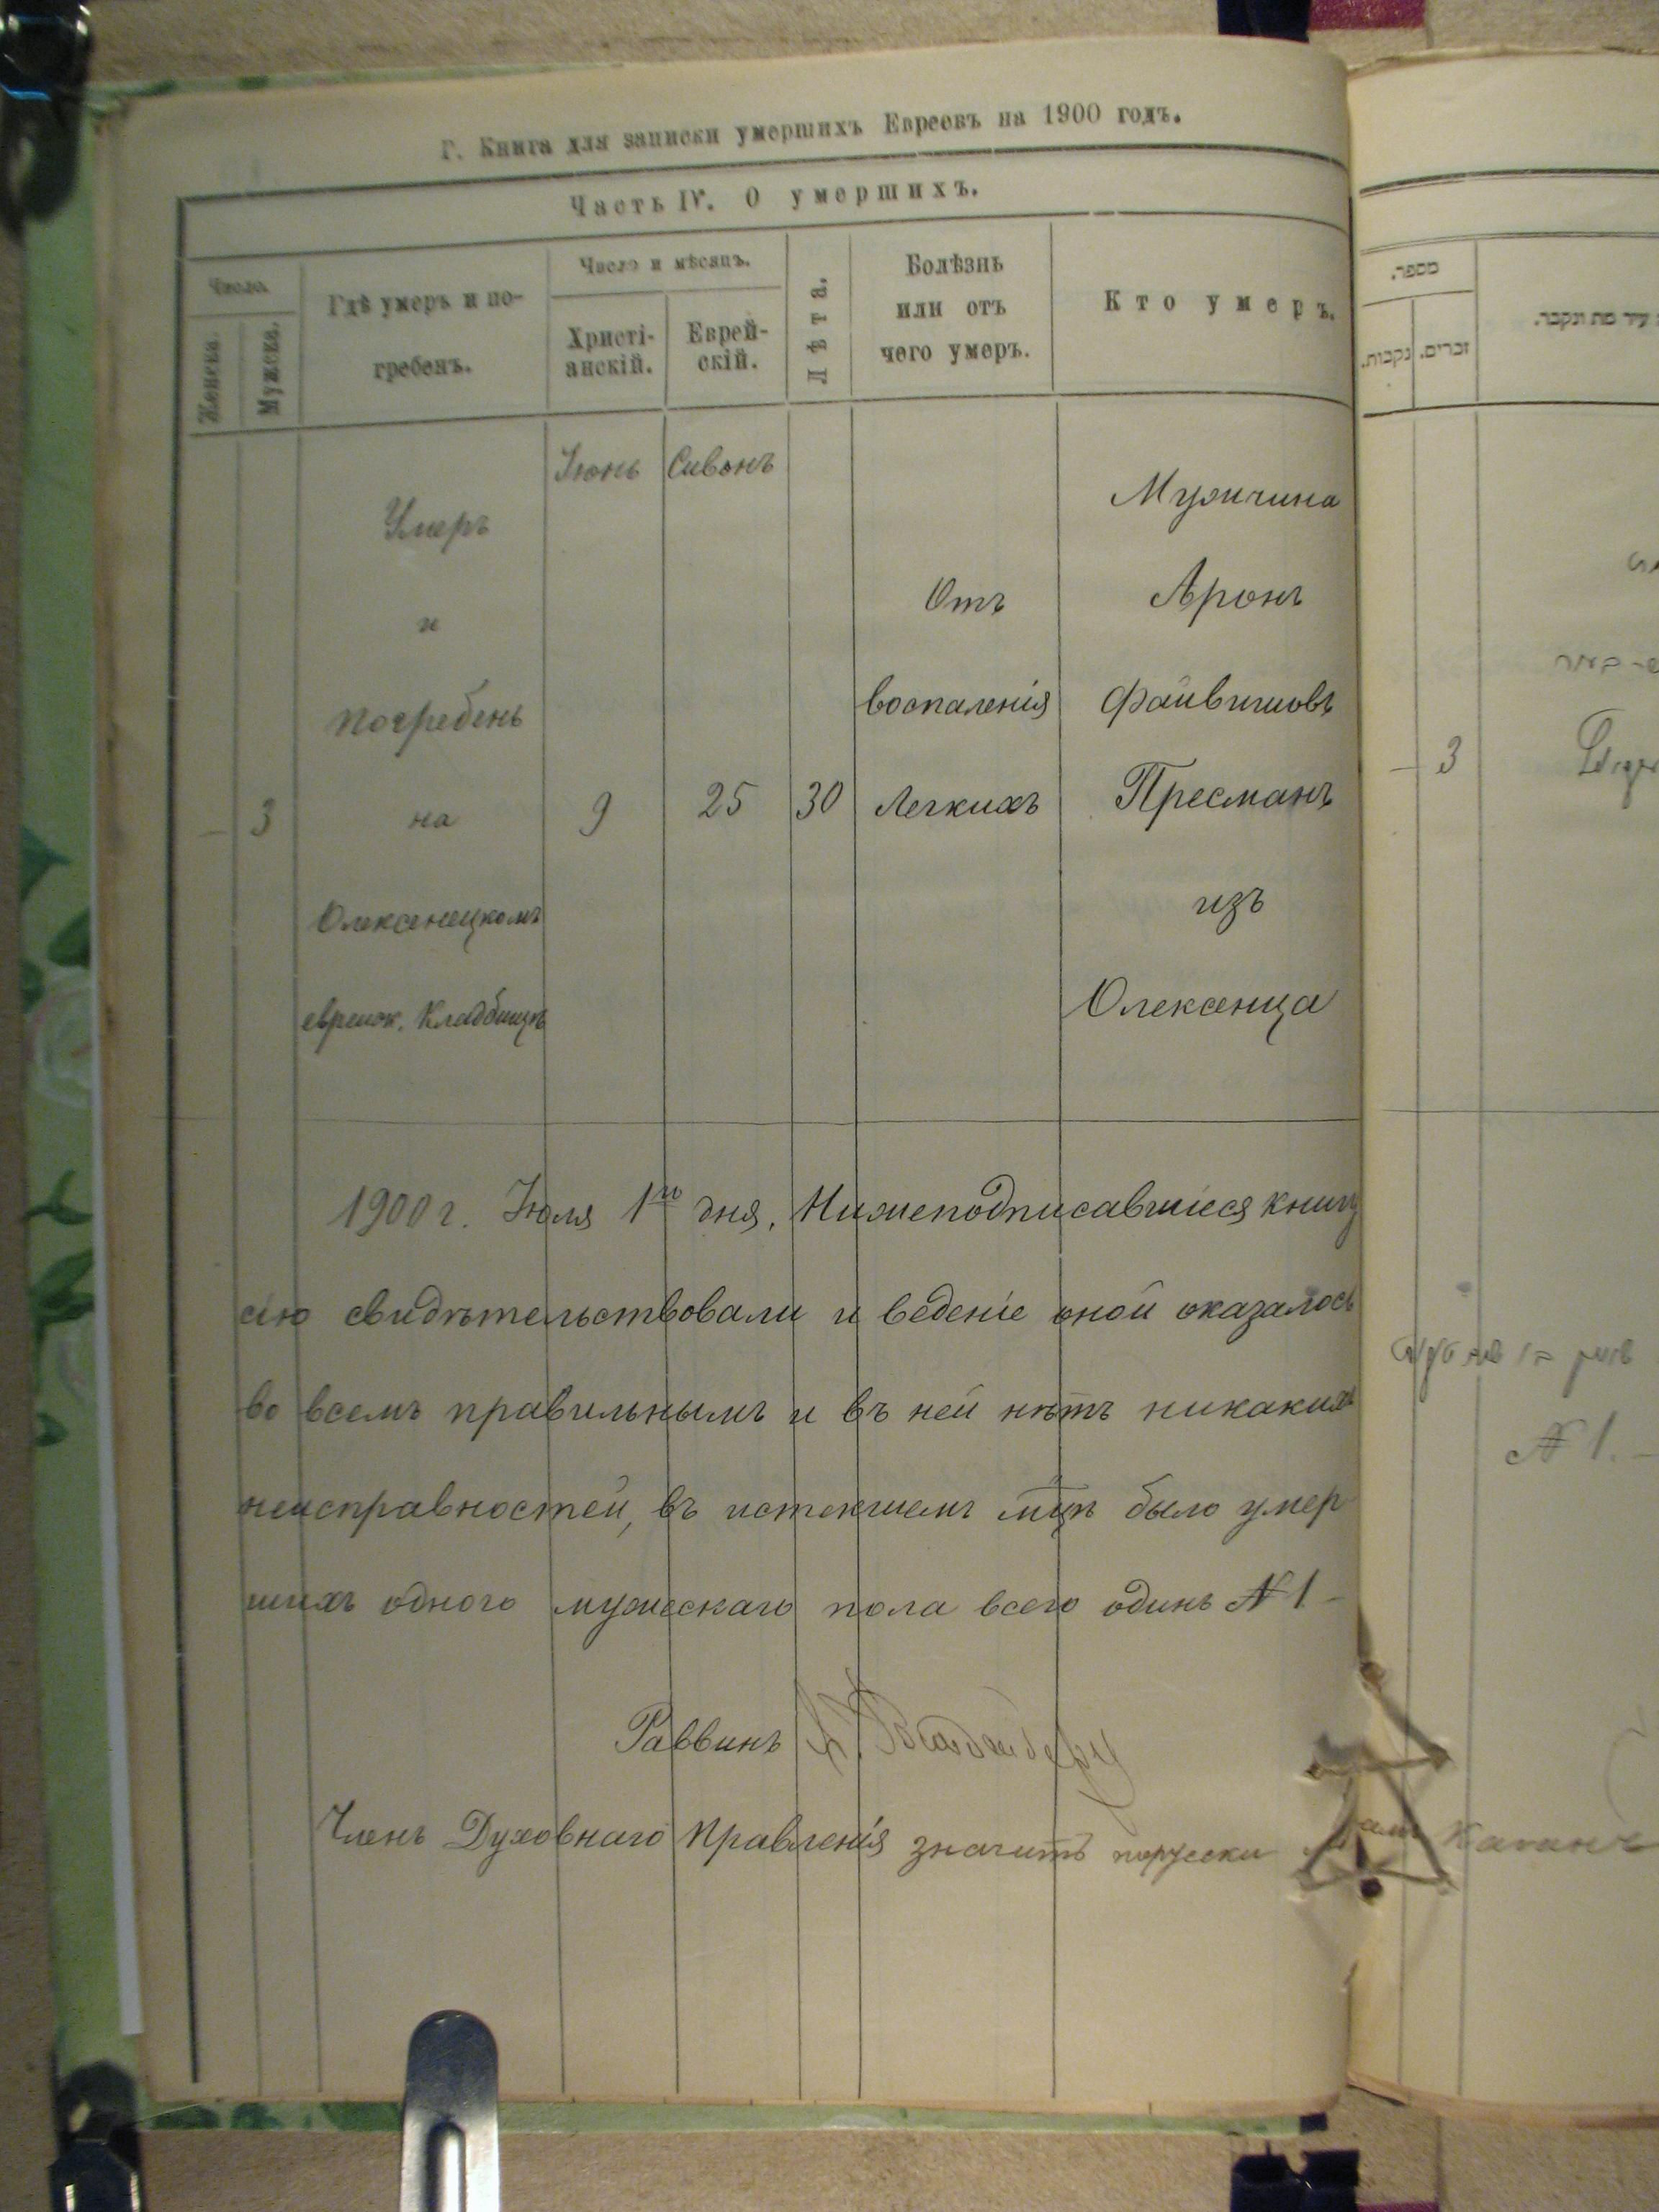 Г. Книга для записки умершихъ Евреевъ на 1900 годъ.
Часть IV. О умершихъ.
Число.
Женска.
Мужска.
Гдѣ умеръ и по-
гребенъ.
Число и мѣсяцъ.
Христі-
анскій.
Еврей-
скій.
Лѣта.
Болѣзнь
или отъ
чего умеръ.
Кто умеръ.
Іюнь
Сивонъ
Умеръ
и
погребенъ
на
Олексенецкомъ
евренск. Кладбищѣ
— 3
9
25
30
Отъ
воспаленія
Легкихъ
Мужчина
Аронъ
Файвишовъ
Пресманъ
изъ
Олексенца
1900 г. Іюля 1го дня. Нижеподписавшіеся книгу
сію свидѣтельствовали и веденіе оной оказалось
во всемъ правильнымъ и въ ней нѣтъ никакихъ
неисправностей, въ истекшемъ мцѣ было умер
шихъ одного мужескаго пола всего одинъ № 1 –
Раввинъ
Членъ Духовнаго Правленія значитъ порусски
Каганъ
מספר.
נקבות.
זכרים.
עיר מת ונקבר.
— 3
№ 1. –